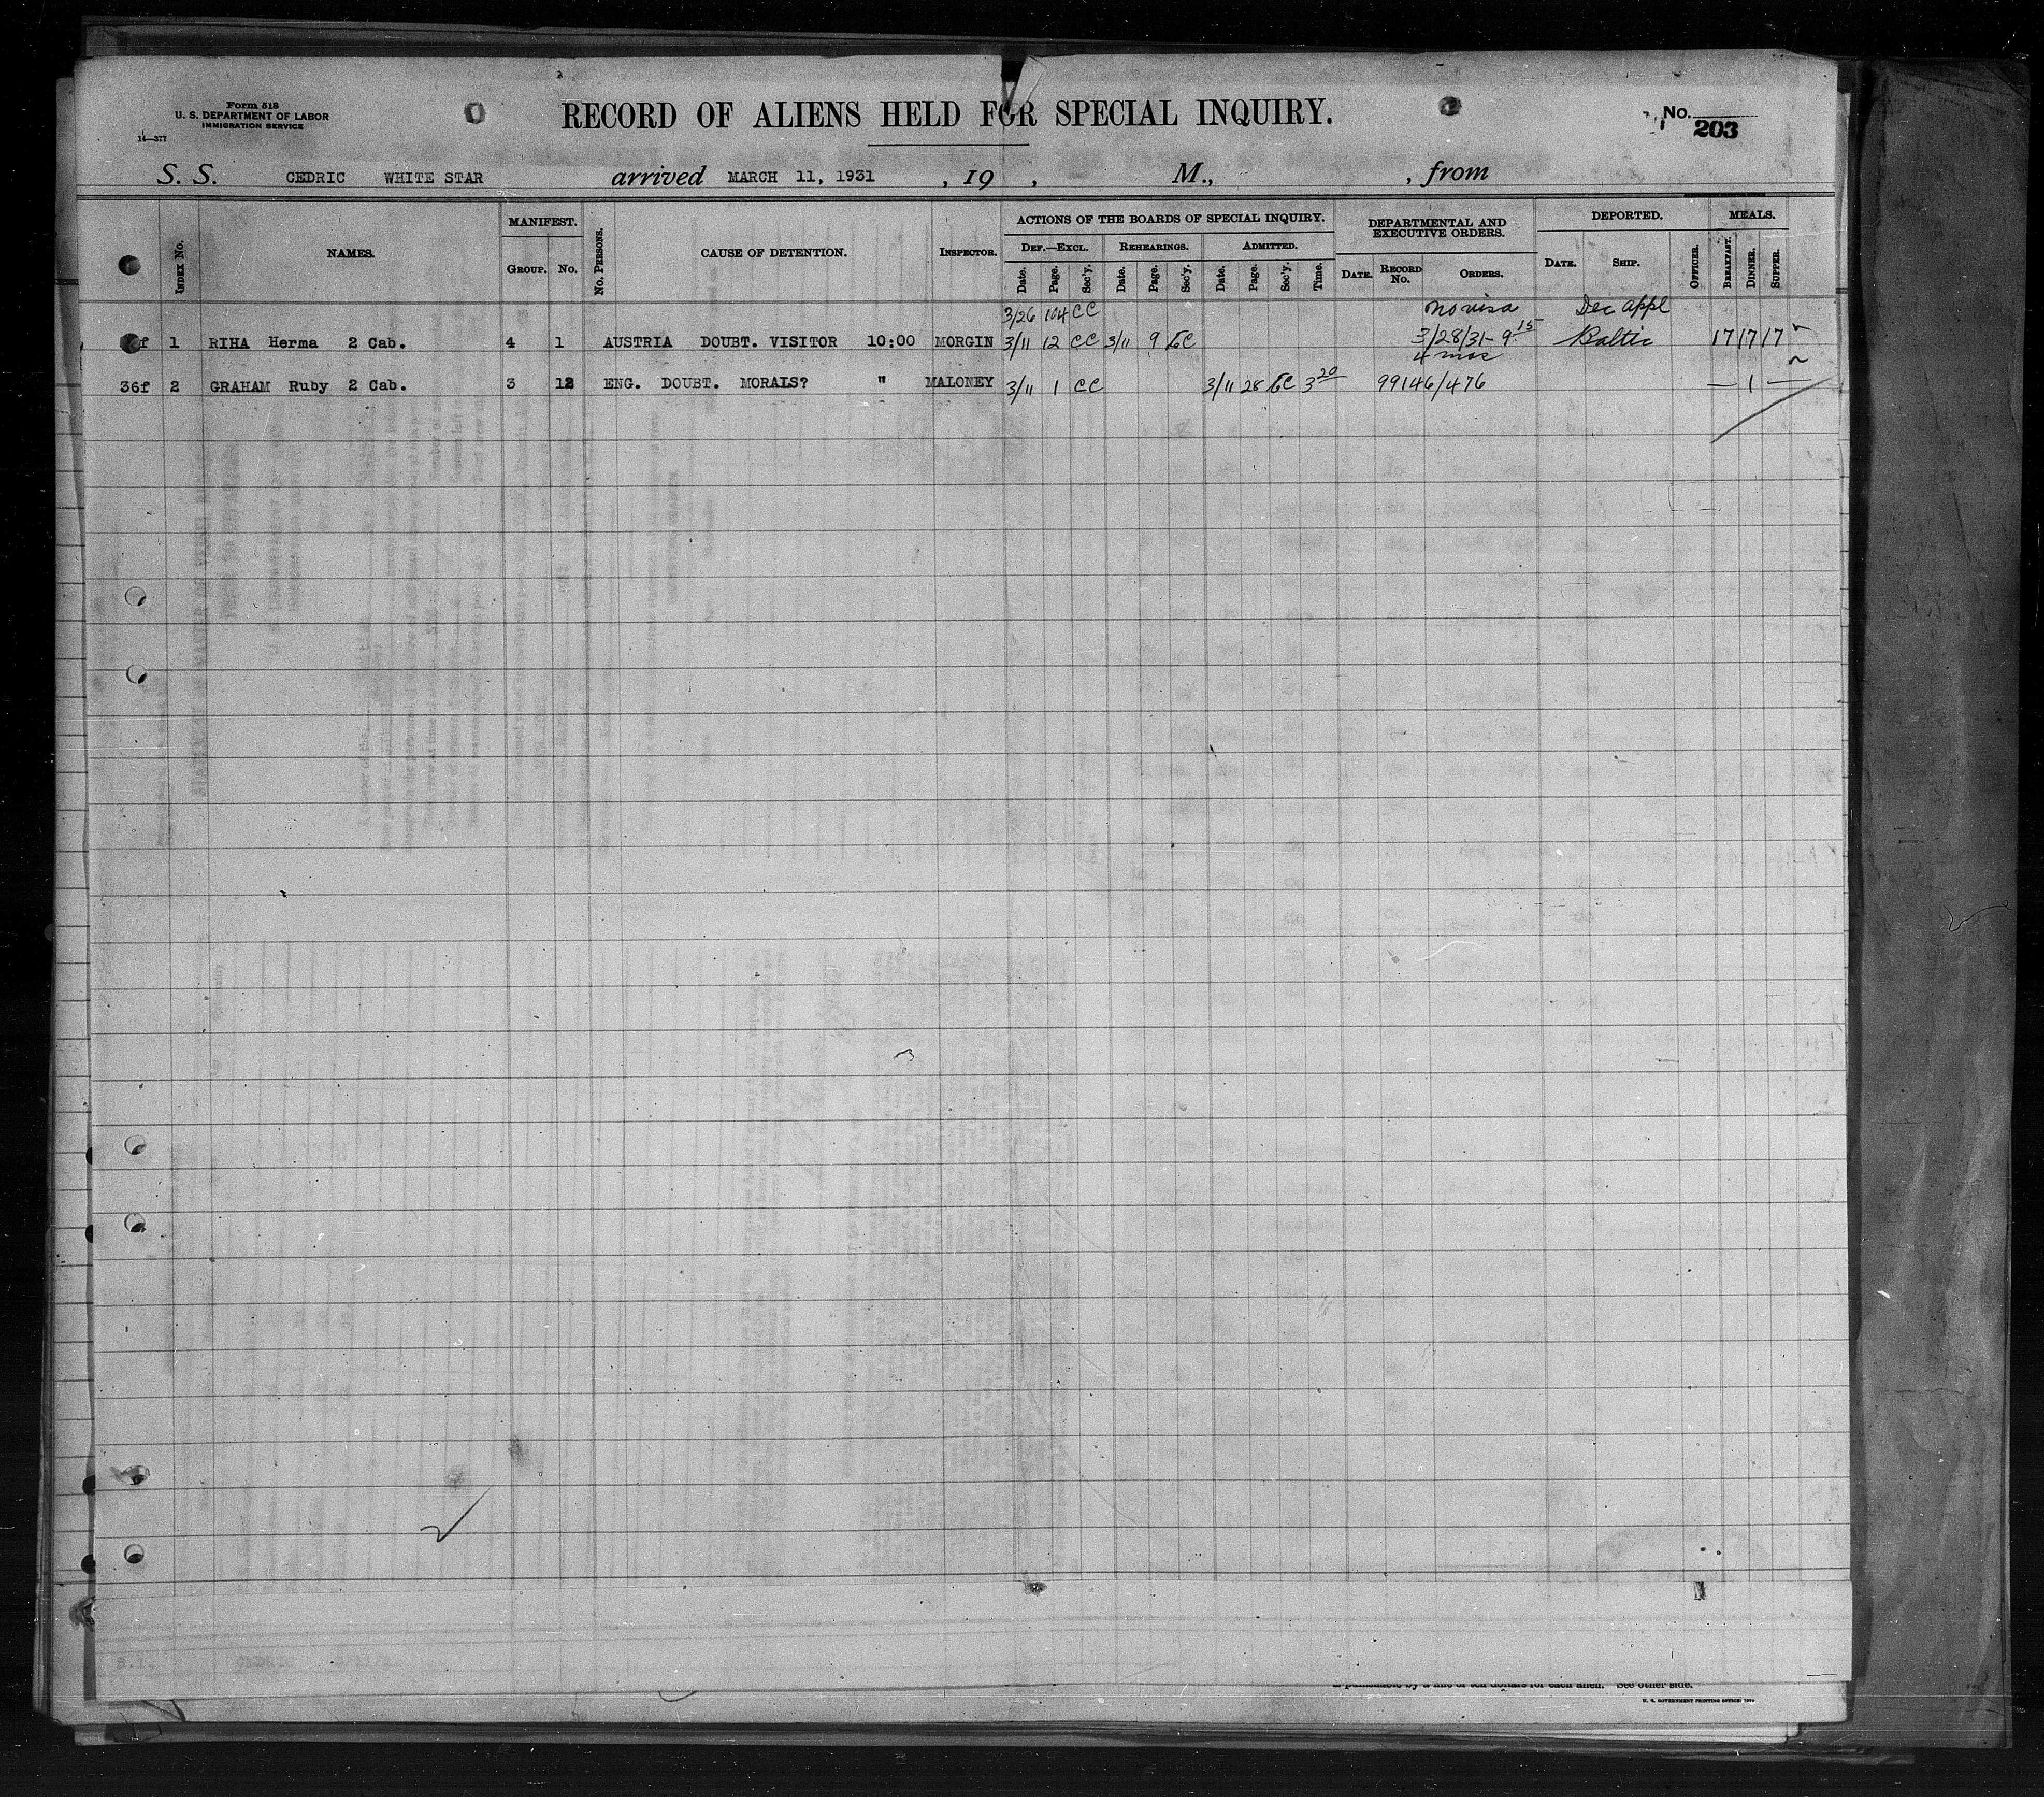 Form 518
U. S. DEPARTMENT OF LABOR
IMMIGRATION SERVICE
14—377
RECORD OF ALIENS HELD FOR SPECIAL INQUIRY.
No. 203
S. S. CEDRIC WHITE STAR arrived MARCH 11, 1931 , 19 , M., , from
INDEX No. NAMES. MANIFEST. GROUP. No. No. PERSONS. CAUSE OF DETENTION. INSPECTOR. ACTIONS OF THE BOARDS OF SPECIAL INQUIRY. DEF.—EXCL. Date. Page. Sec'y. REHEARINGS. Date. Page. Sec'y. ADMITTED. Date. Page. Sec'y. Time. DEPARTMENTAL AND EXECUTIVE ORDERS. DATE. RECORD No. ORDERS. DEPORTED. DATE. SHIP. OFFICER. MEALS. BREAKFAST. DINNER. SUPPER.
3/26 104 CC no visa Dec appl
f 1 RIHA Herma 2 Cab. 4 1 AUSTRIA DOUBT. VISITOR 10:00 MORGIN 3/11 12 CC 3/11 9 EC 3/28/31- 9 15 Baltic 17 17 17
4 mos
36f 2 GRAHAM Ruby 2 Cab. 3 12 ENG. DOUBT. MORALS? " MALONEY 3/11 1 CC 3/11 28 EC 3 20 99146/476 — 1 —
S.I. CEDRIC
is punishable by a fine of ten dollars for each alien. See other side.
U. S. GOVERNMENT PRINTING OFFICE: